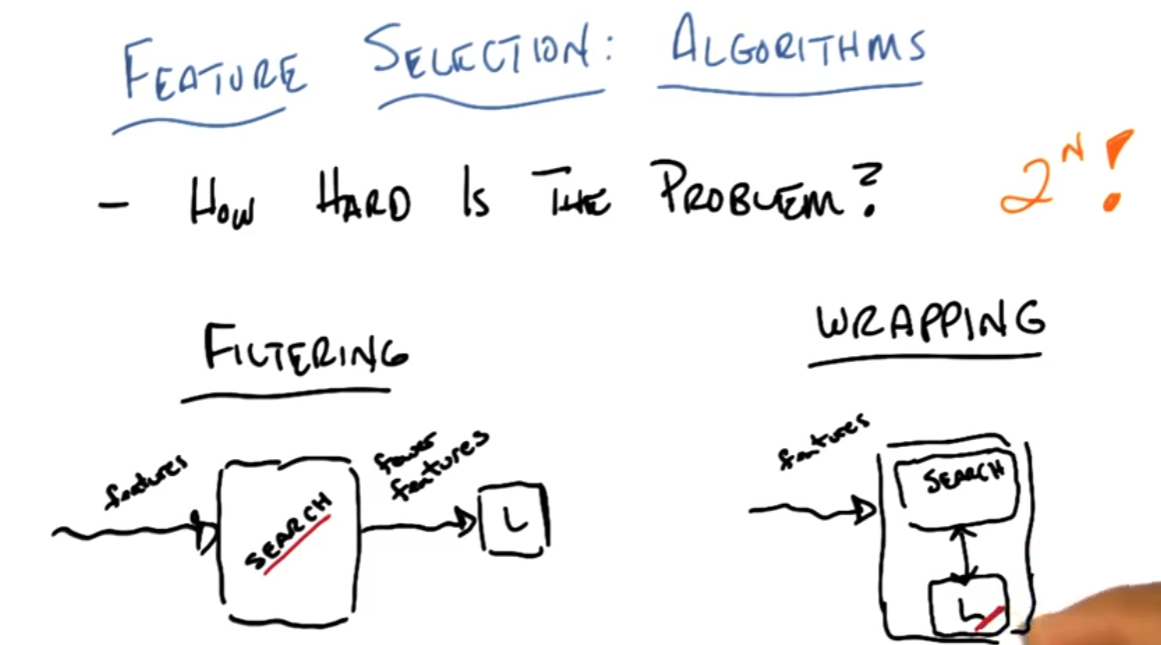 FEATURE SELECTION: ALGORITHMS
- HOW HARD IS THE PROBLEM? 2^N!
FILTERING
WRAPPING
features
SEARCH
fewer
features
L
features
SEARCH
L